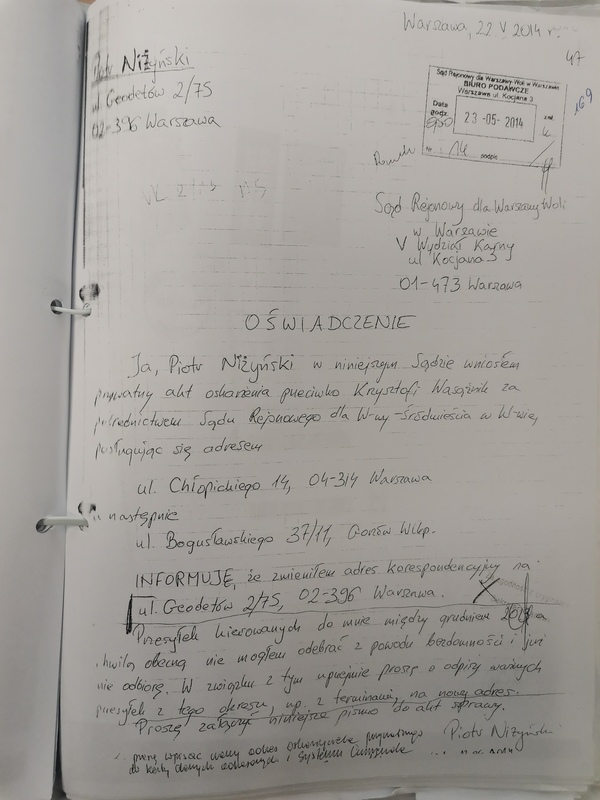 Warszawa, 22 V 2014 r.
47
169
Piotr Niżyński
ul. Geodetów 2/75
02-396 Warszawa
Sąd Rejonowy dla Warszawy-Woli w Warszawie
BIURO PODAWCZE
Warszawa ul. Kocjana 3
Data
godz.
23-05-2014
zał.
Nr 14
podpis
Sąd Rejonowy dla Warszawy Woli
w Warszawie
V Wydział Karny
ul. Kocjana 3
01-473 Warszawa
OŚWIADCZENIE
Ja, Piotr Niżyński w niniejszym Sądzie wniosłem
prywatny akt oskarżenia przeciwko Krzysztofi Wasążnik za
pośrednictwem Sądu Rejonowego dla W-wy-Śródmieścia w W-wie,
posługując się adresem
ul. Chłopickiego 14, 04-314 Warszawa
a następnie
ul. Bogusławskiego 37/11, Gorzów Wlkp.
INFORMUJĘ, że zmieniłem adres korespondencyjny na
ul. Geodetów 2/75, 02-396 Warszawa.
Przesyłek kierowanych do mnie między grudniem 2013 a
chwilą obecną nie mogłem odebrać z powodu bezdomności i już
nie odbiorę. W związku z tym uprzejmie proszę o odpisy ważnych
przesyłek z tego okresu, np. z terminami, na nowy adres.
Proszę załączyć niniejsze pismo do akt sprawy.
Piotr Niżyński
proszę wpisać nowy adres oskarżyciela prywatnego
do karty danych adresowych i Systemu